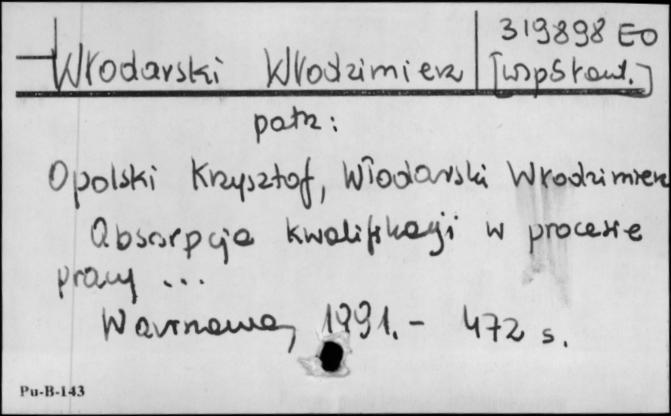 319898 EO
Włodarski Włodzimierz [współaut.]
patrz:
Opolski Krzysztof, Włodarski Włodzimierz
Absorpcja kwalifikacji w procesie
pracy ...
Warszawa, 1991. - 472 s.
Pu-B-143